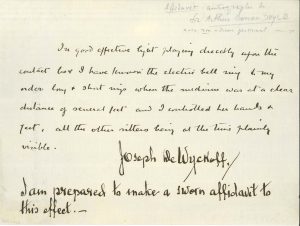 Affidavit autograph to
Sir Arthur Conan Doyle
In good effective light playing directly upon the
contact box I have known the electric bell ring to my
order long & short rings when the medium was at a clear
distance of several feet and I controlled her hands &
feet, all the other sitters being at the time plainly
visible.
Joseph DeWyckoff
I am prepared to make a sworn affidavit to
this effect. —